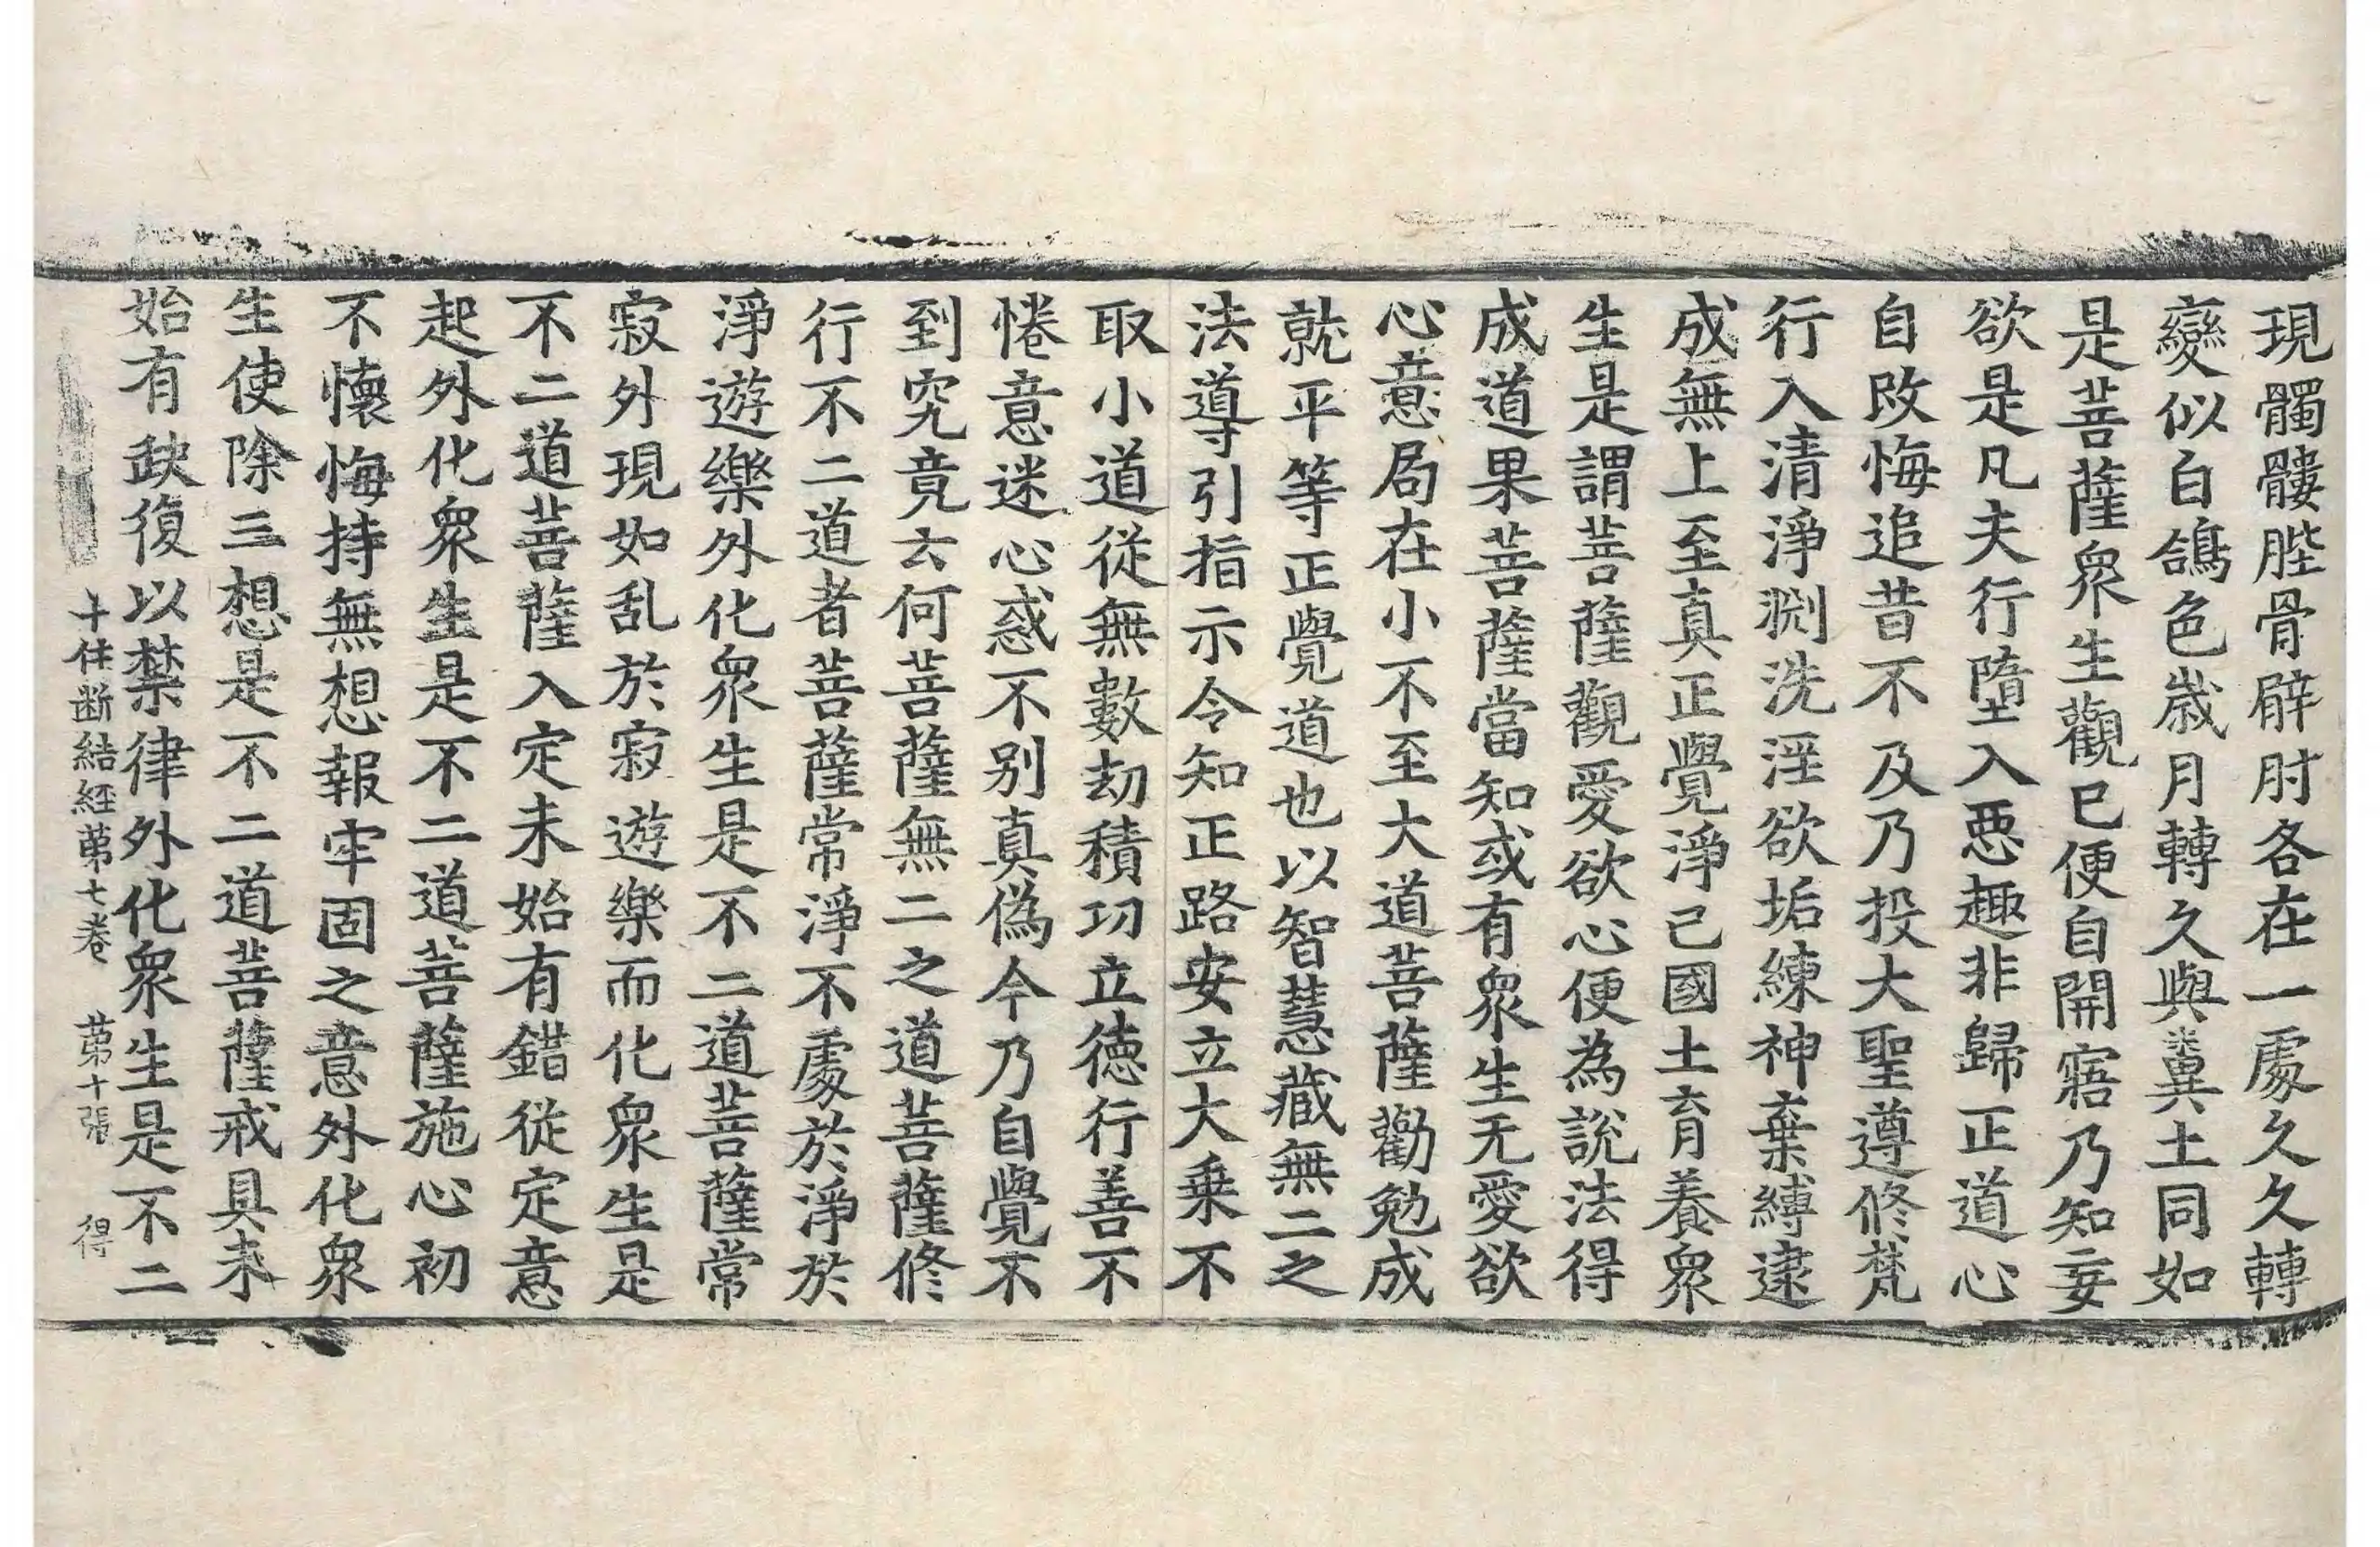 現髑髏䏶骨臂肘各在一處久久久轉
變似白鴿色歲月轉久與糞土同如
是菩薩衆生觀已便自開寤乃知妄
欲是凡夫行墮入惡趣非歸正道心
自改悔追昔不及乃投大聖遵修梵
行入清淨渕洗淫欲垢練神棄縛逮
成無上至真正覺淨己國土育養衆
生是謂菩薩觀愛欲心便為說法得
成道果菩薩當知或有衆生无愛欲
心意局在小不至大道菩薩勸勉成
就平等正覺道也以智慧藏無二之
法導引指示令知正路安立大乗不
取小道從無數劫積功立德行善不
惓意迷心惑不别真偽今乃自覺不
到究竟云何菩薩無二之道菩薩修
行不二道者菩薩常淨不處於淨於
淨遊樂外化衆生是不二道菩薩常
寂外現如乱於寂遊樂而化衆生是
不二道菩薩入定未始有錯從定意
起外化衆生是不二道菩薩施心初
不懷悔持無想報牢固之意外化衆
生使除三想是不二道菩薩戒具未
始有缺復以禁律外化衆生是不二
十住断結經苐七卷 苐十張 得